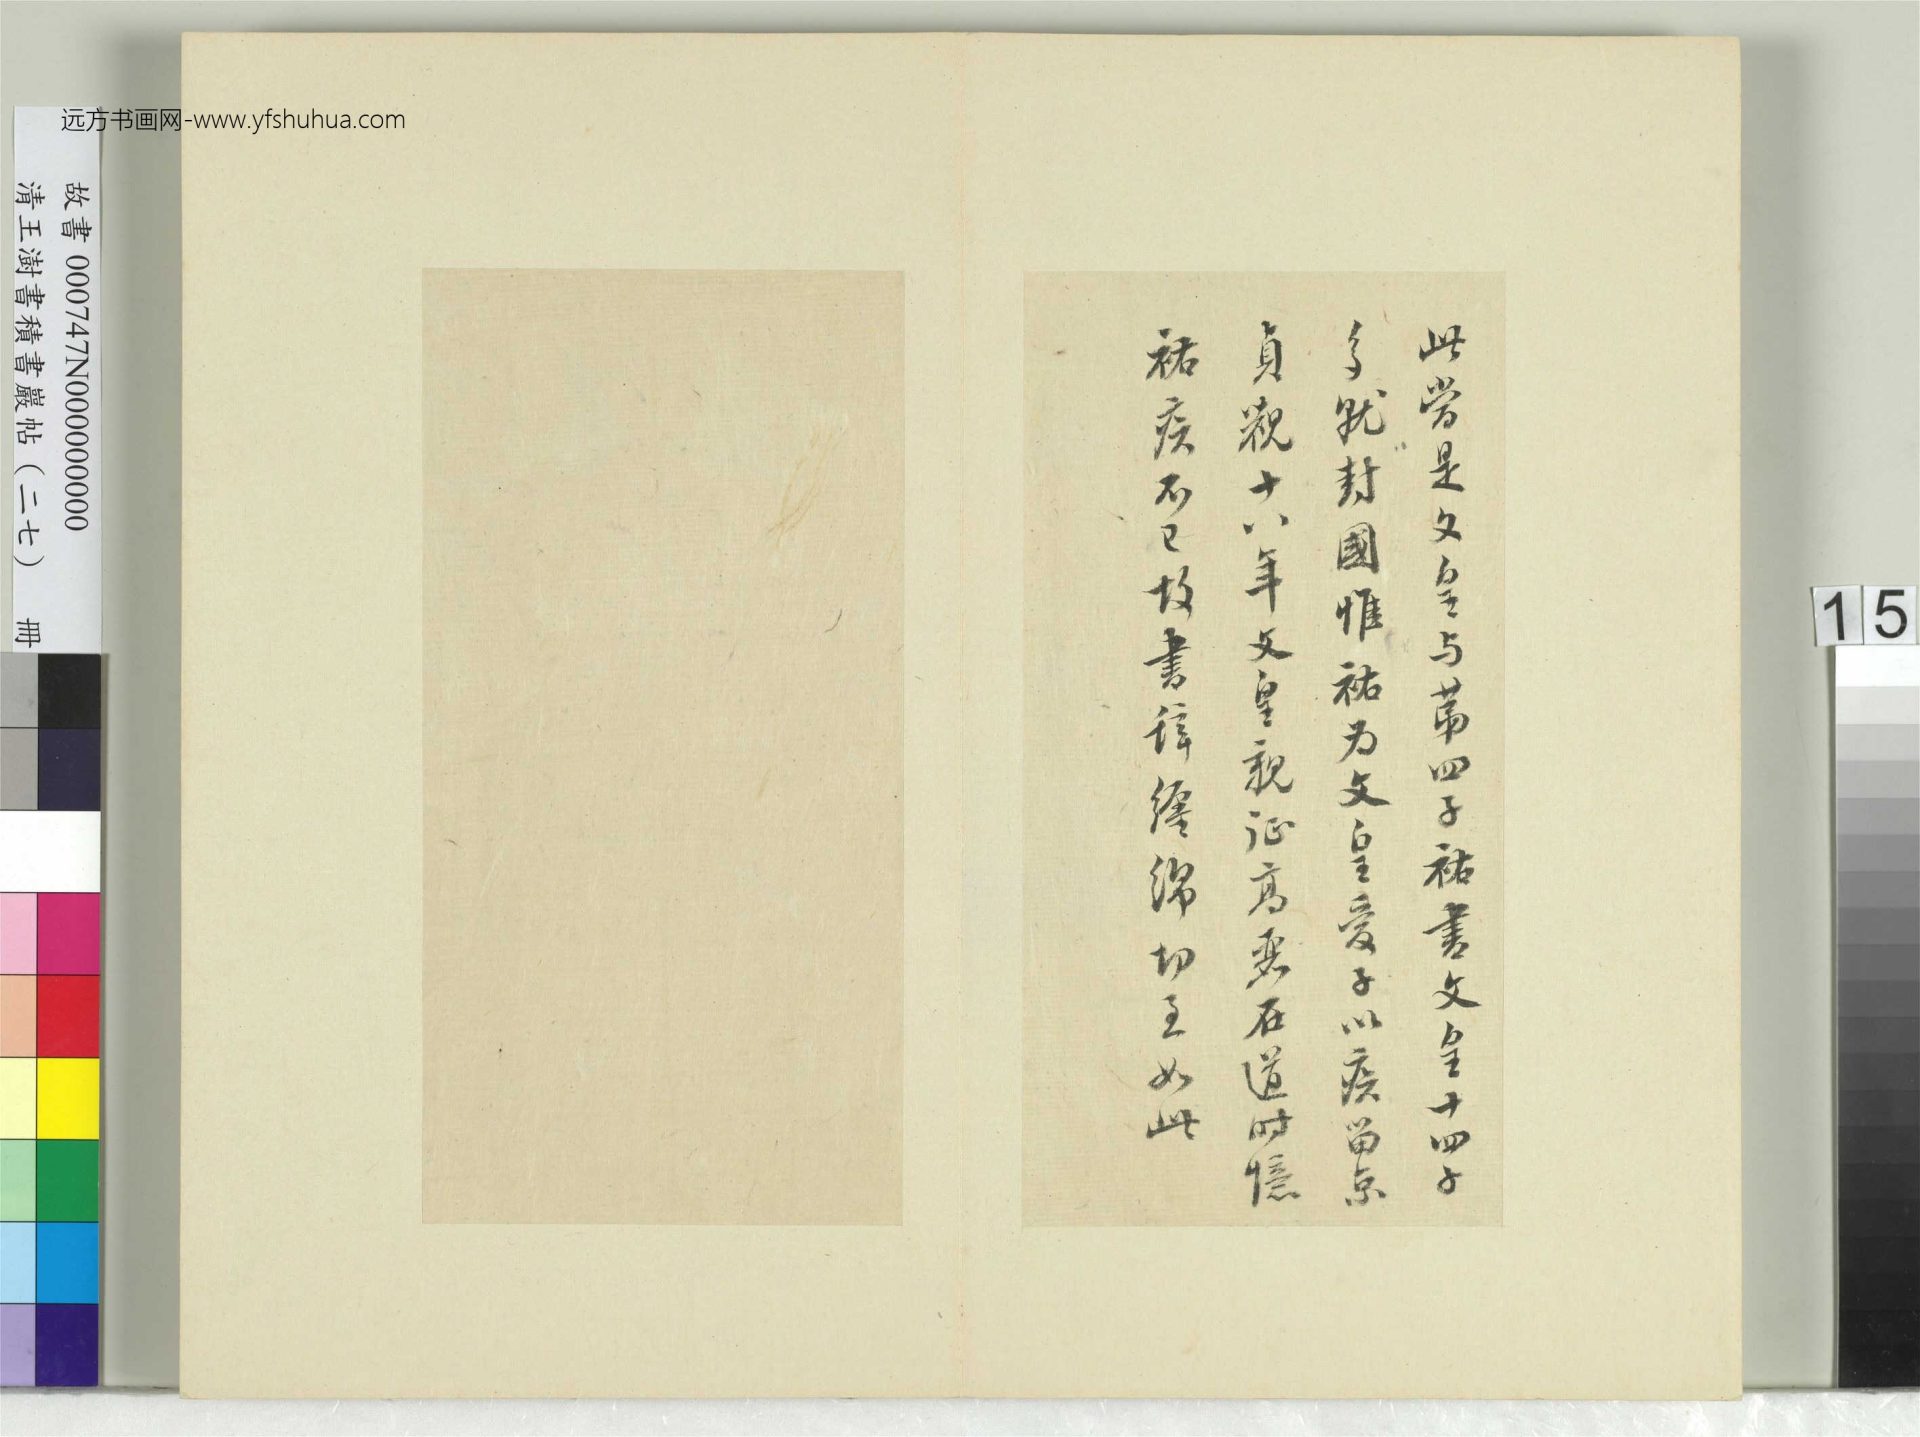 远方书画网-www.yfshuhua.com
故書 000747N000000000
清王澍書積書巖帖（二七） 冊
此當是文皇与苐四子祐書文皇十四子
多就封國惟祐为文皇愛子以疾留京
貞觀十八年文皇親征高麗在道时憶
祐疾不已故書辞纏綿切至如此
15